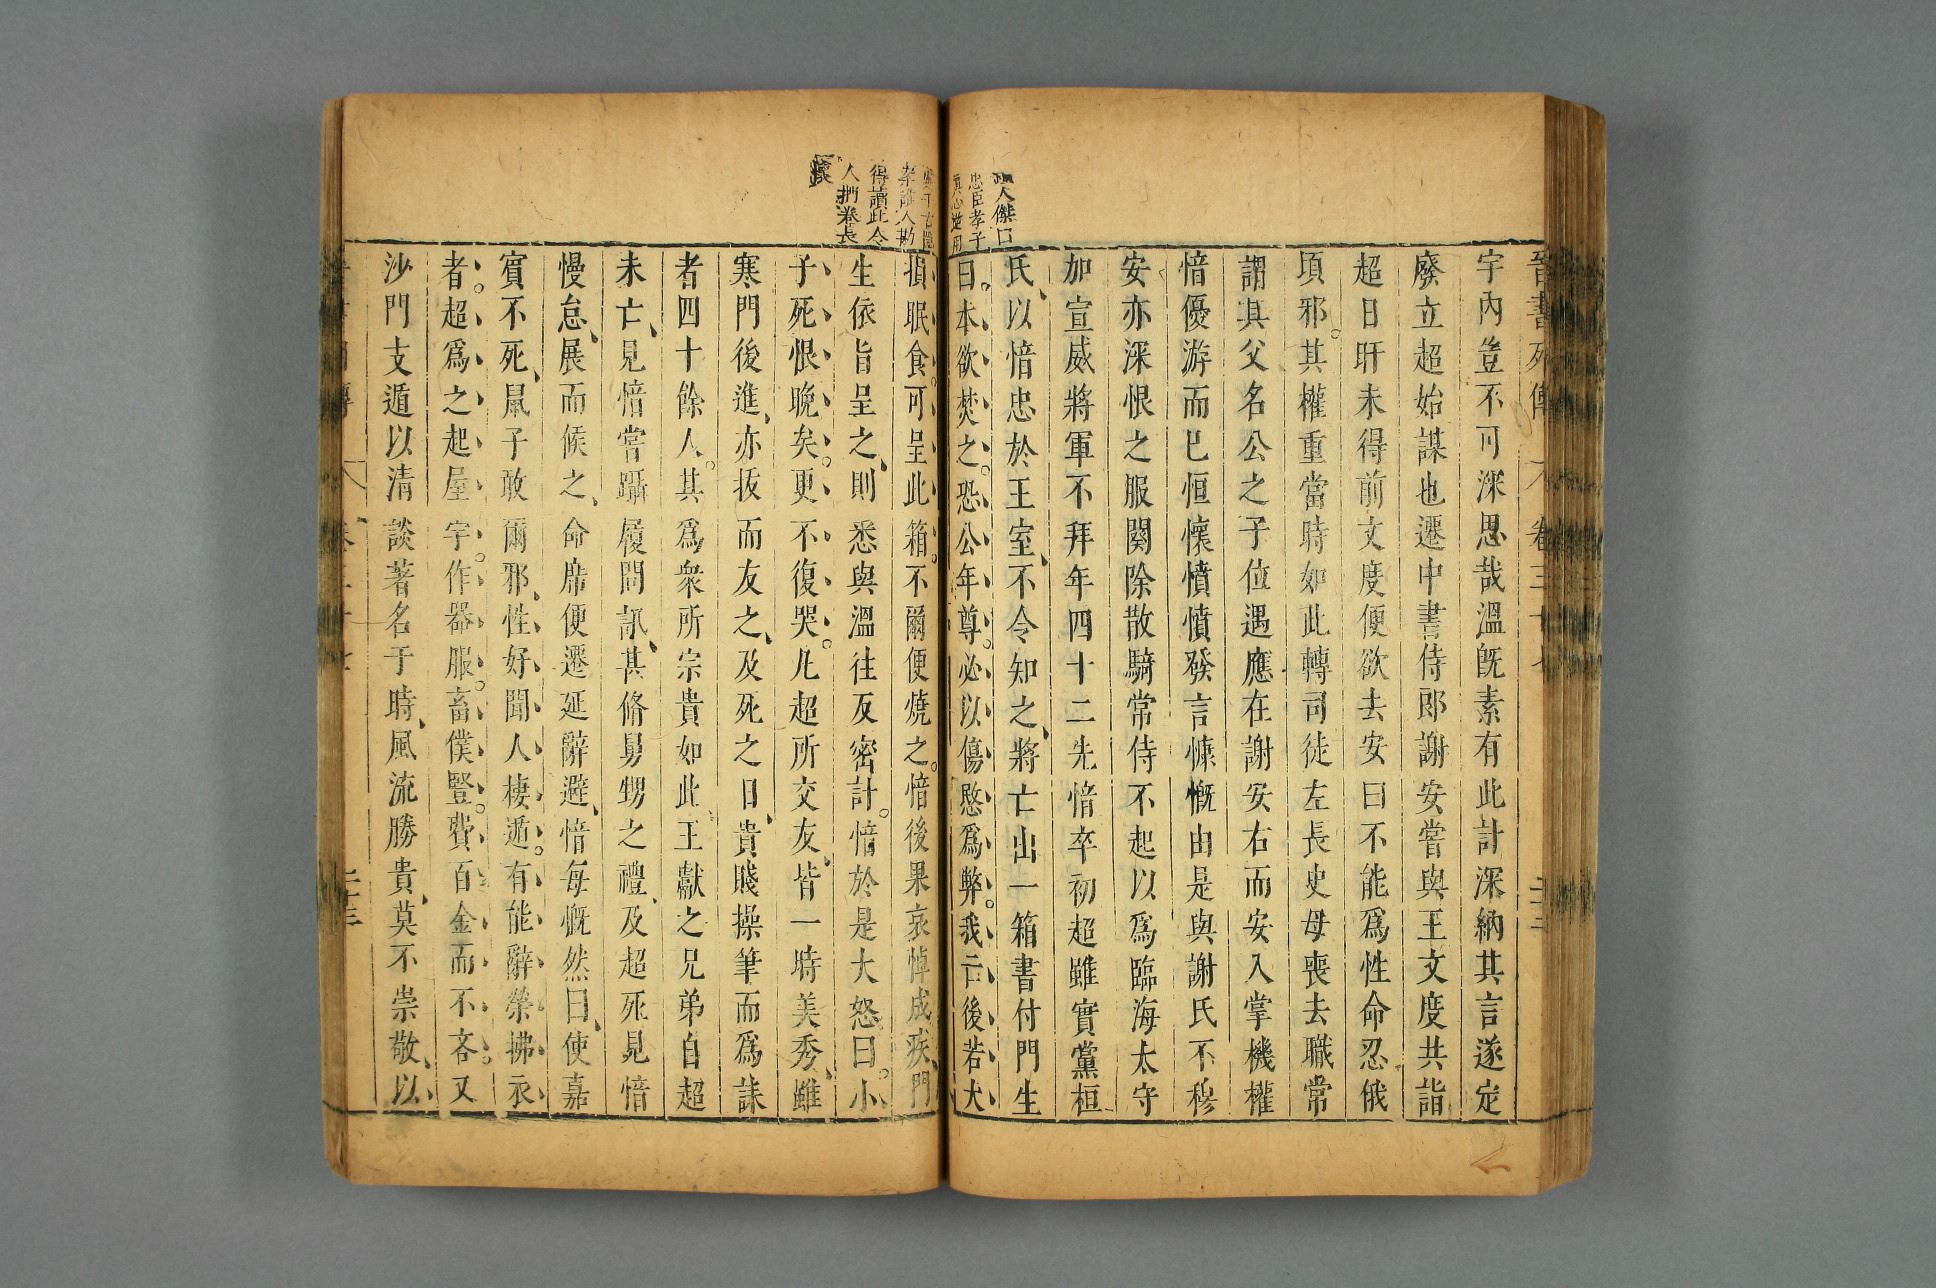 宇內豈不可深思哉溫旣素有此計深納其言遂定
廢立超始謀也遷中書侍郎謝安嘗與王文度共詣
超日旰未得前文度便欲去安曰不能爲性命忍俄
頃邪。其權重當時如此轉司徒左長史母喪去職常
謂其父名公之子位遇應在謝安右而安入掌機權
愔優游而已恒懷憤憤發言慷慨由是與謝氏不穆
安亦深恨之服闋除散騎常侍不起以爲臨海太守
加宣威將軍不拜年四十二先愔卒初超雖實黨桓
氏、以愔忠於王室、不令知之、將亡出一箱書付門生
曰。本欲焚之。恐公年尊。必以傷愍爲弊。我亡後若大
損眠食。可呈此箱。不爾便燒之。愔後果哀悼成疾、門
生依旨呈之、則悉與溫往反密計。愔於是大怒曰。小
子死恨晚矣。更不復哭。凡超所交友、皆一時美秀、雖
寒門後進、亦拔而友之、及死之日、貴賤操筆而爲誄
者四十餘人。其爲衆所宗貴如此、王獻之兄弟自超
未亡、見愔嘗躡履問訊、甚脩舅甥之禮、及超死見愔
慢怠、展而候之、命席便遷延辭避、愔每慨然曰、使嘉
賓不死、鼠子敢爾邪、性好聞人棲遁。有能辭榮拂衣
者。超爲之起屋宇。作器服。畜僕豎。費百金而不吝。又
沙門支遁以淸談著名于時、風流勝貴、莫不崇敬、以
人傑口
忠臣孝子
得讀此令
人捫卷長